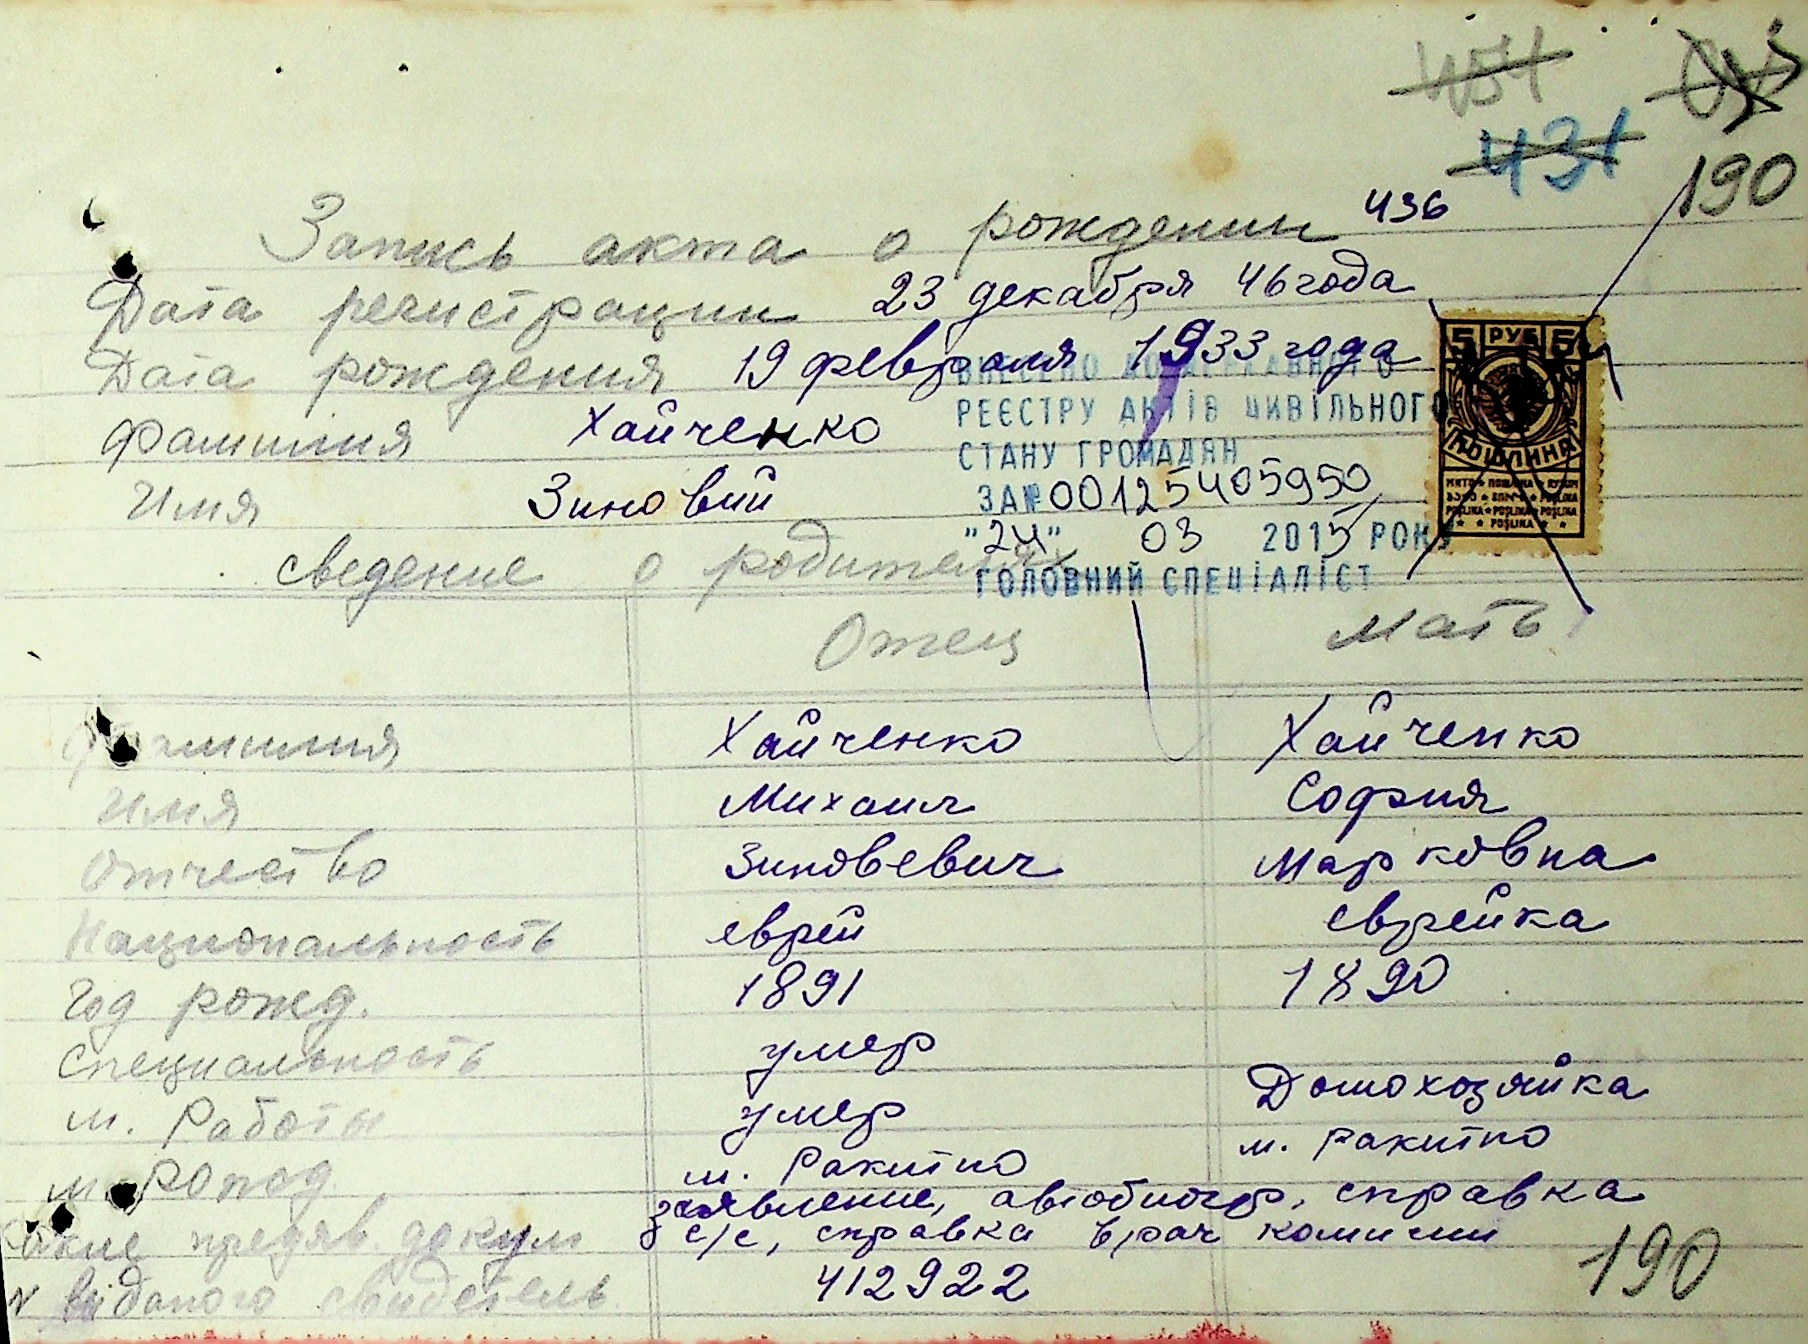 454
431
190
Запись акта о рождении 436
Дата регистрации 23 декабря 46 года
Дата рождения 19 февраля 1933 года
Фамилия Хайченко
Имя Зиновий
сведение о родителях
ВНЕСЕНО ДО ДЕРЖАВНОГО
РЕЄСТРУ АКТІВ ЦИВІЛЬНОГО
СТАНУ ГРОМАДЯН
ЗА № 00125405950
"24" 03 2015 РОКУ
ГОЛОВНИЙ СПЕЦІАЛІСТ
5 РУБ 5
ПОШЛИНА
Отец Мать
Фамилия Хайченко Хайченко
Имя Михаил София
Отчество Зиновевич Марковна
Национальность еврей еврейка
год рожд. 1891 1890
специальность умер
м. Работы умер Домохозяйка
м. Рожд м. Ракитно м. Ракитно
какие предяв. докум заявление, автобиогр. справка
с/с, справка врач комисии
N виданого свидетель 412922
190